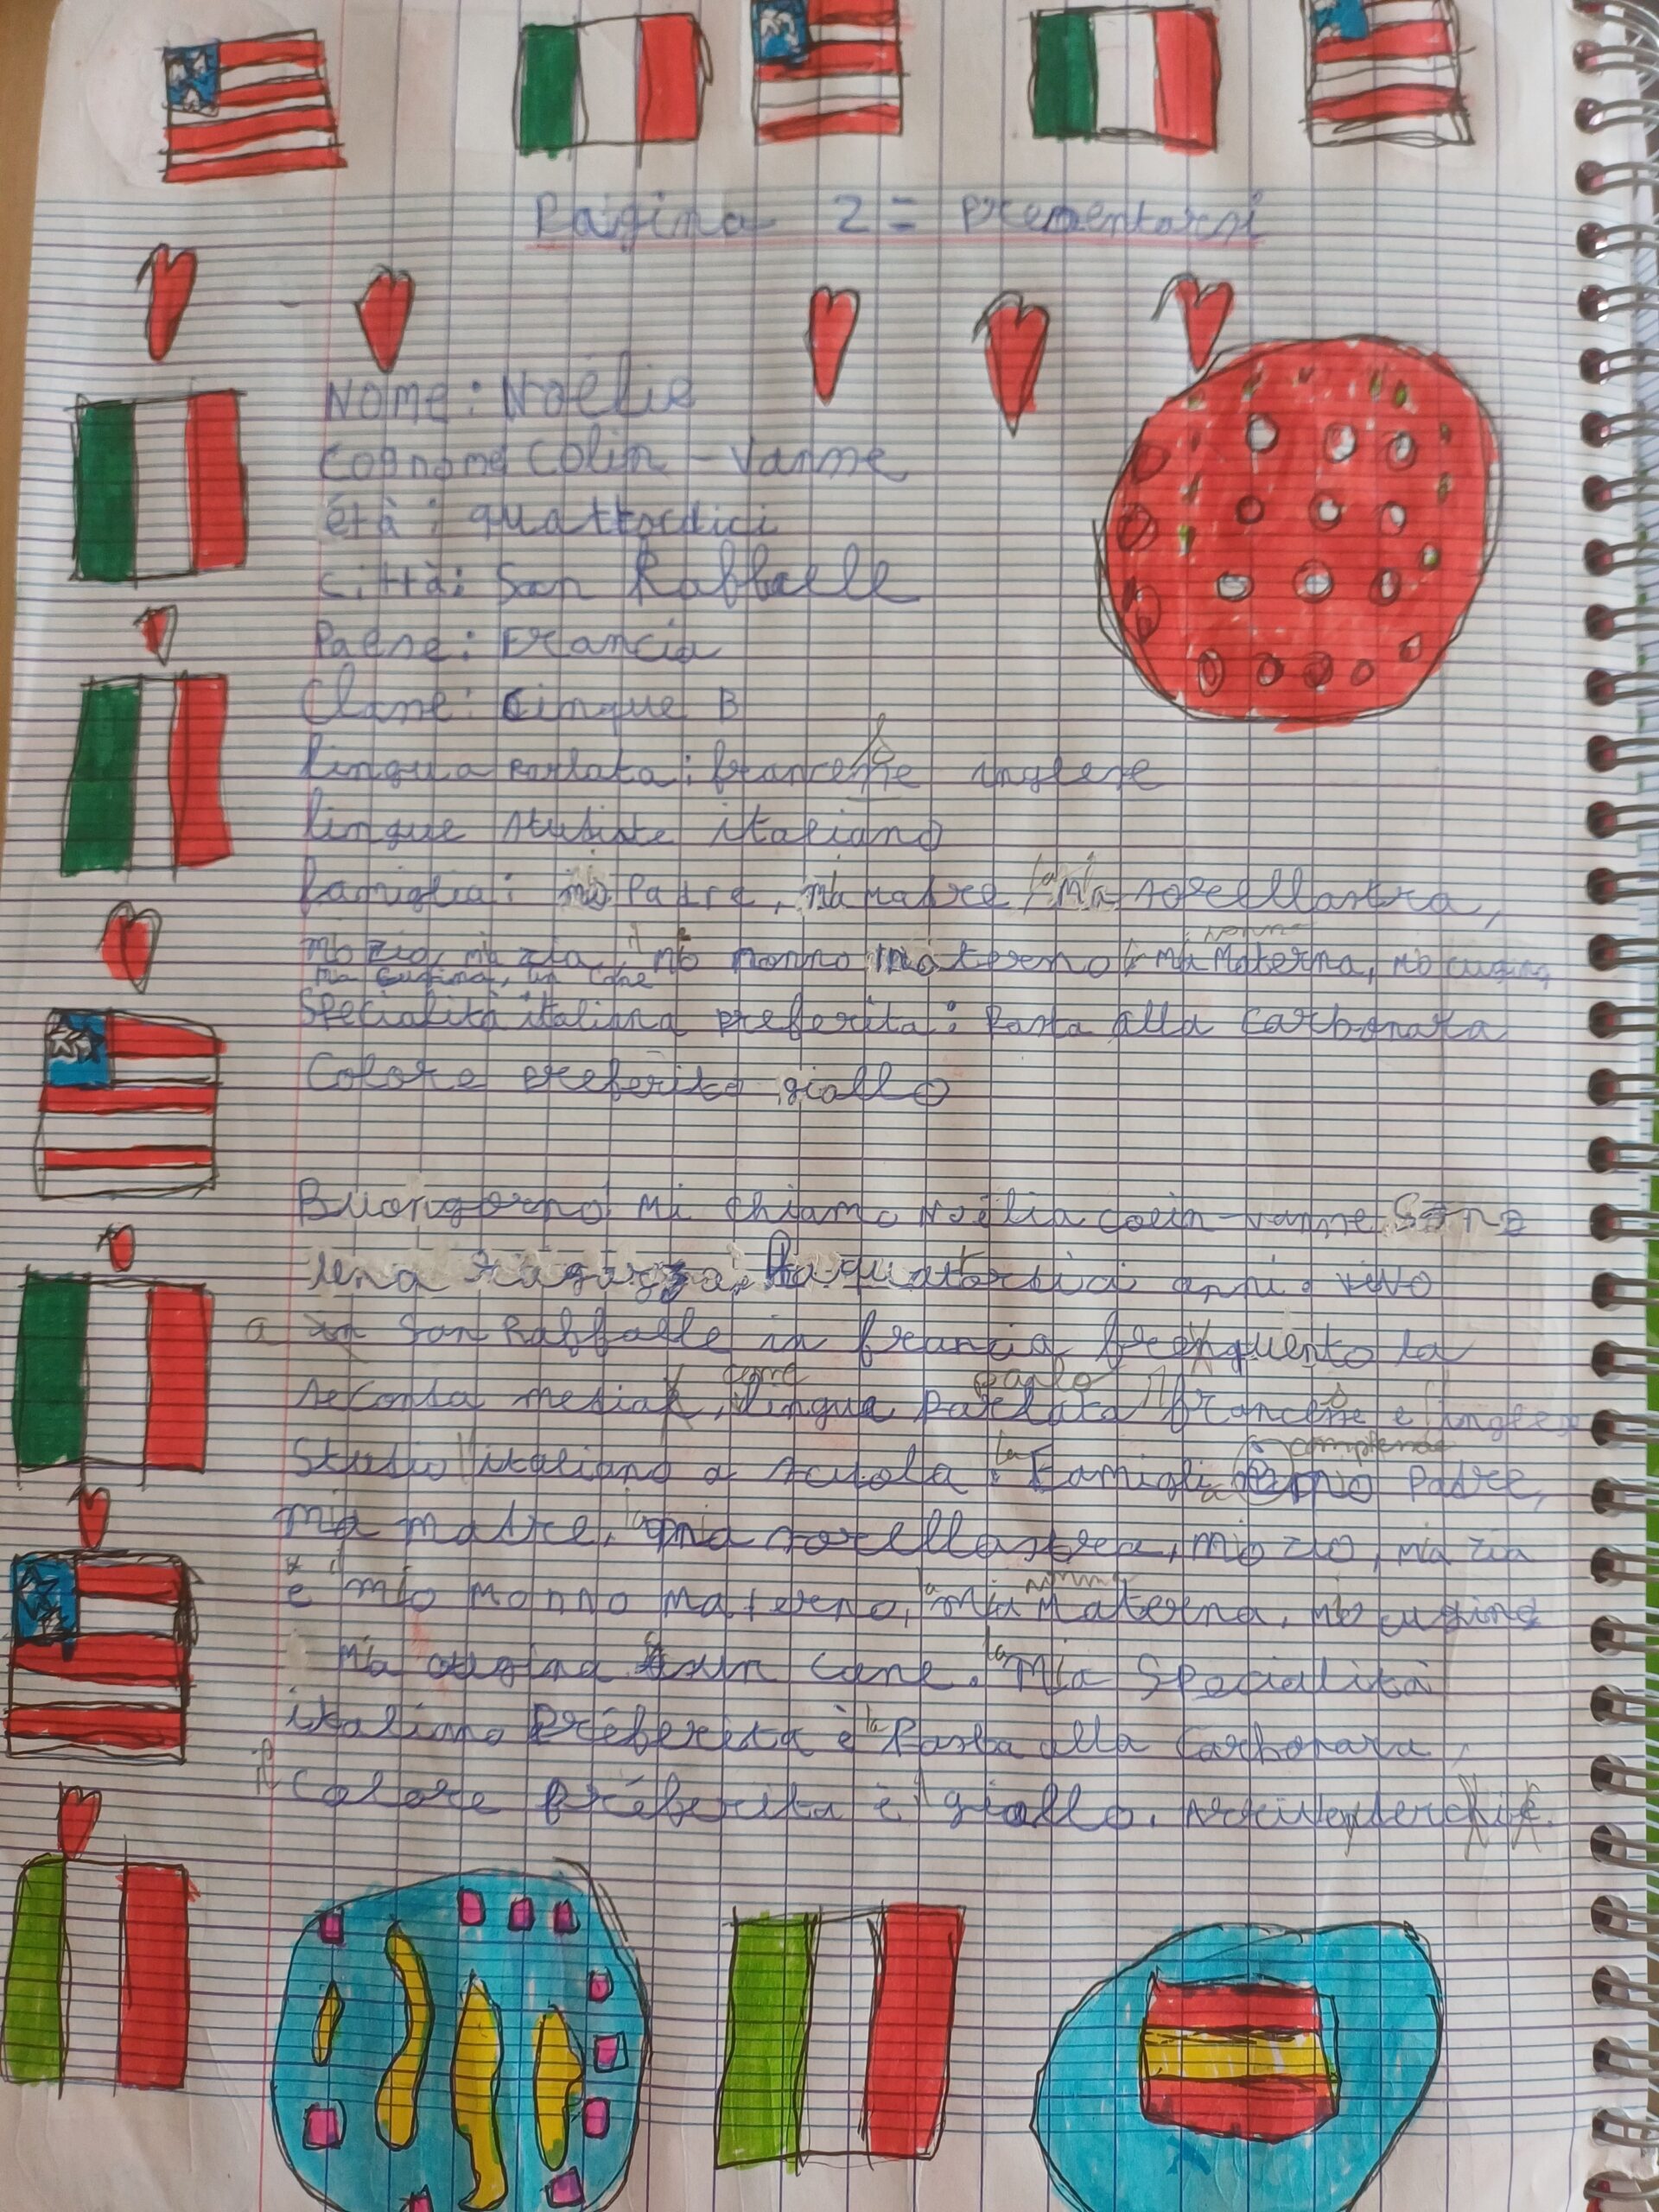 Pagina 2 = presentarsi
Nome : Noélie
Cognome Colin - Vanne
étà : quattordici
città : San Raffaelle
Paese : Francia
Classe : cinque B
lingua parlata : francese inglese
lingue studiate italiano
famiglia : mio Padre, mia madre, la mia sorellastra,
mo zio, mia zia, il mio nonno materno, la mia nonna Materna, mio cugino,
mia cugina, un cane
Specialità italiana preferita : Pasta alla carbonara
Colore preferito giallo
Buongiorno mi chiamo Noëlia Colin-vanne Sono
una ragazza. Ho quattordici anni. vivo
a San Raffaelle in francia frequento la
seconda media, come lingua parlo il francese e l'inglese
Studio l'italiano a scuola. la Famiglia comprende mio Padre,
mia madre, la mia sorellastra, mio zio, mia zia
e il mio nonno materno, la mia nonna Materna, mio cugino
mia cugina un cane. la Mia Specialità
italiana préferita è la Pasta alla carbonara,
il Colore préferita è il giallo.